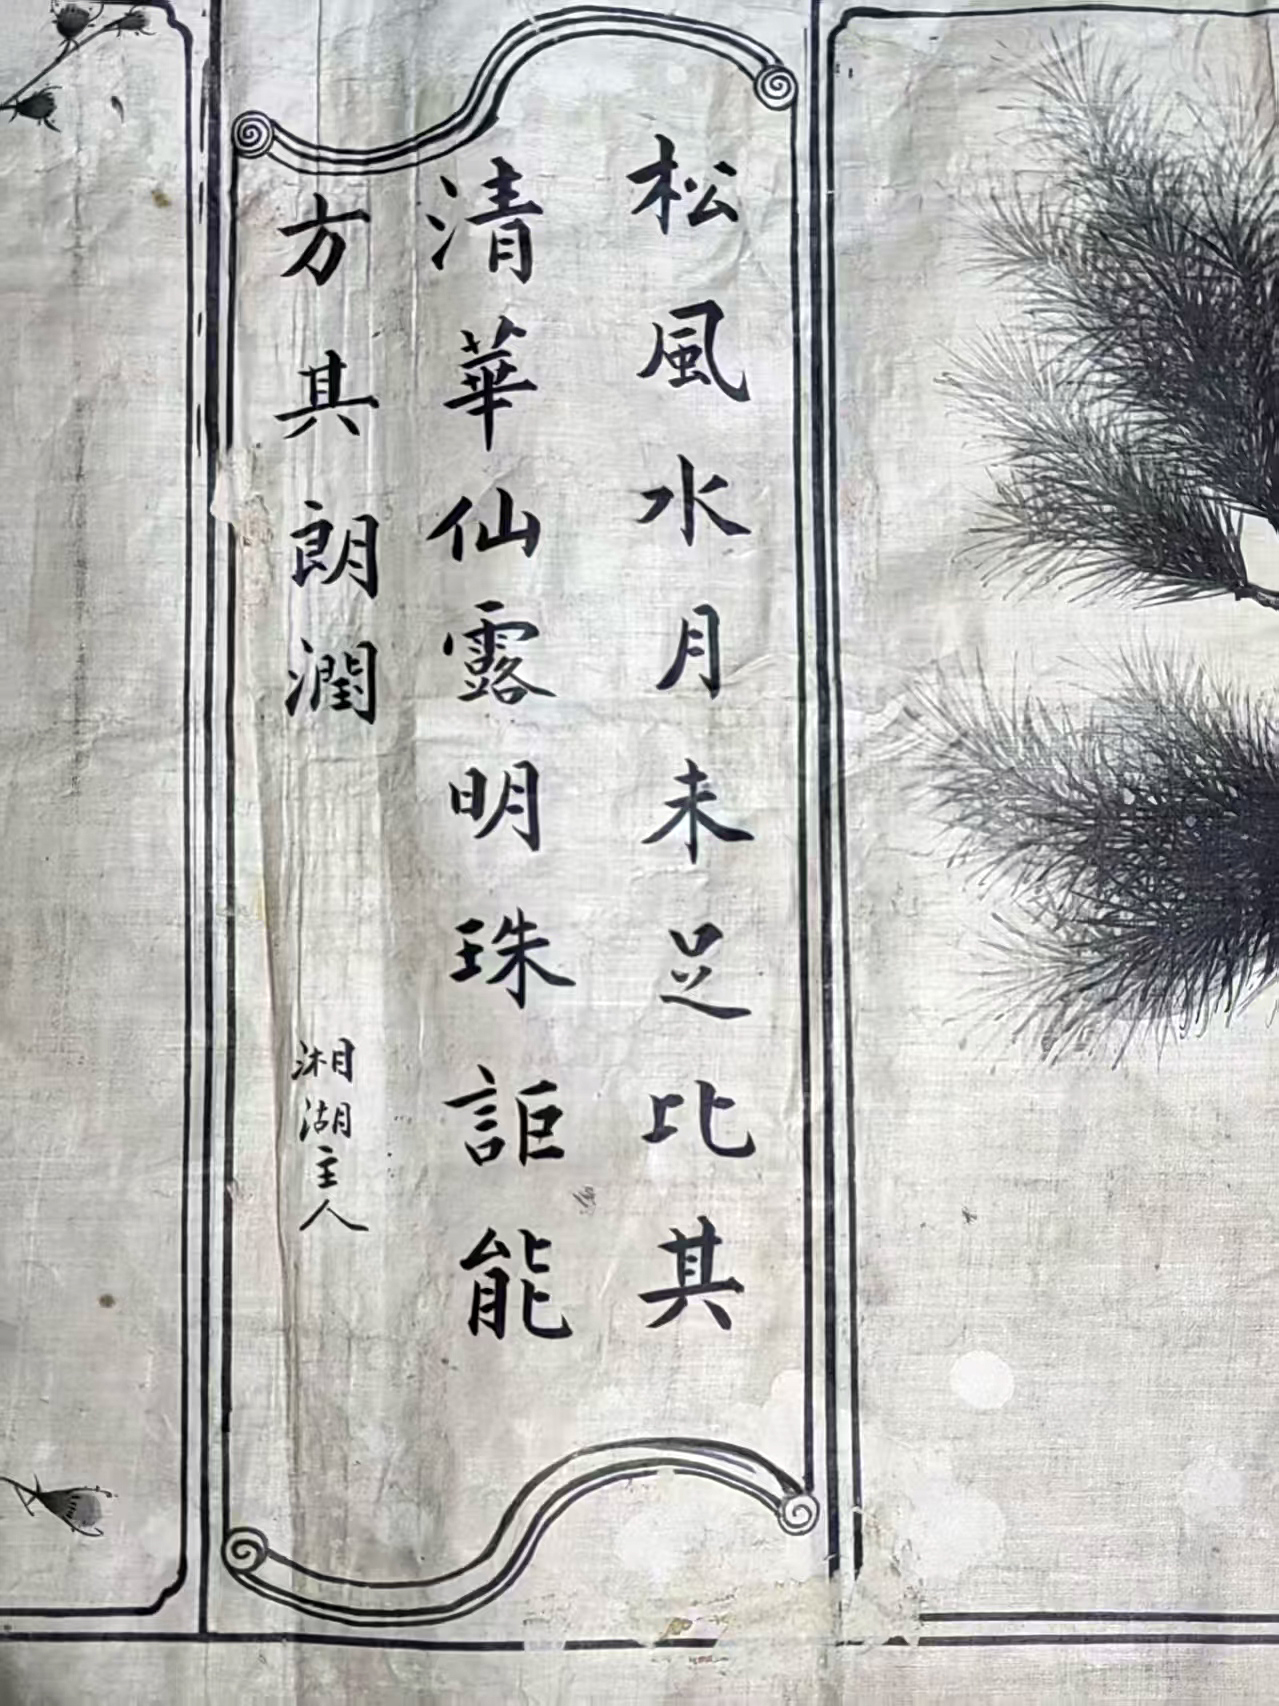 松風水月未足比其
清華仙露明珠詎能
方其朗潤
湘湖主人